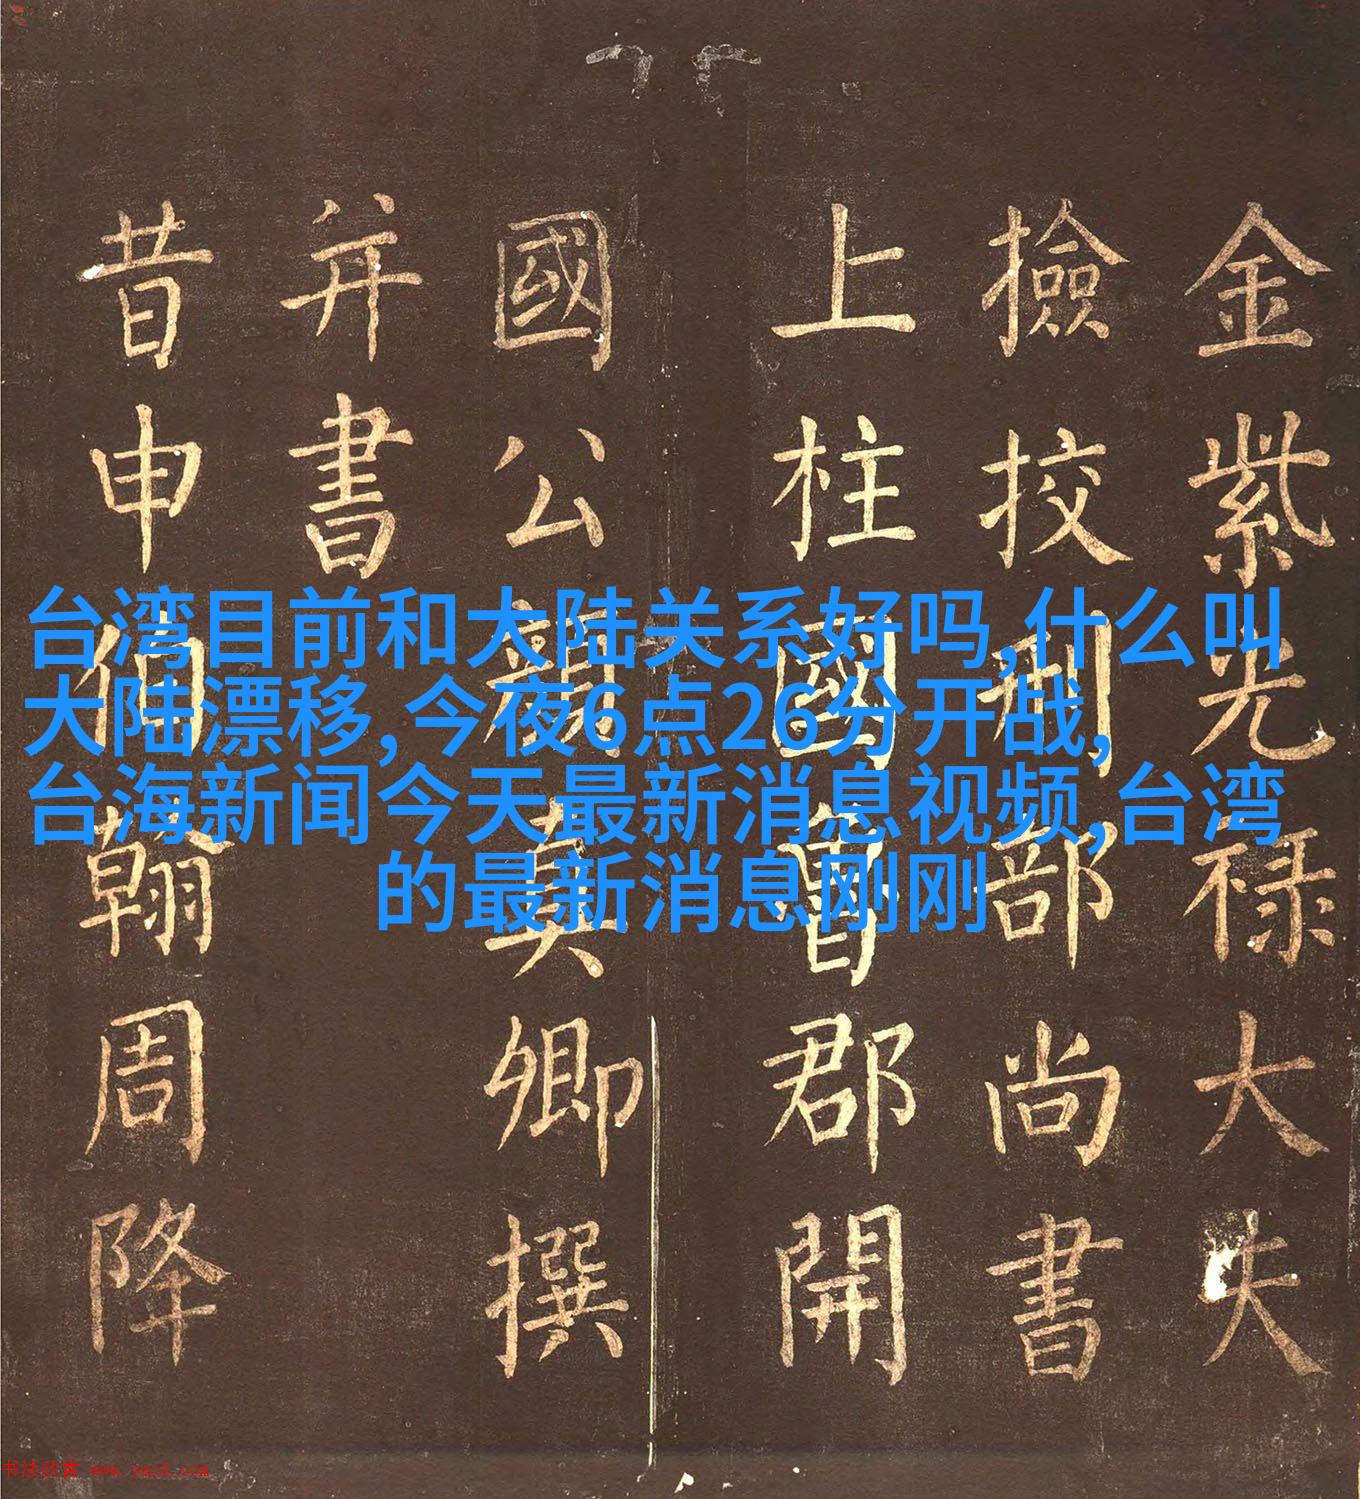 台湾目前和大陆关系好吗,什么叫
大陆漂移,今夜6点26分开战,
台海新闻今天最新消息视频,台湾
的最新消息刚刚
金紫光禄大夫
撿挍刑部尚書
上柱國魯郡開
國公顏真卿撰
并書
昔申伯翰周降
书法欣赏 www.yac8.com